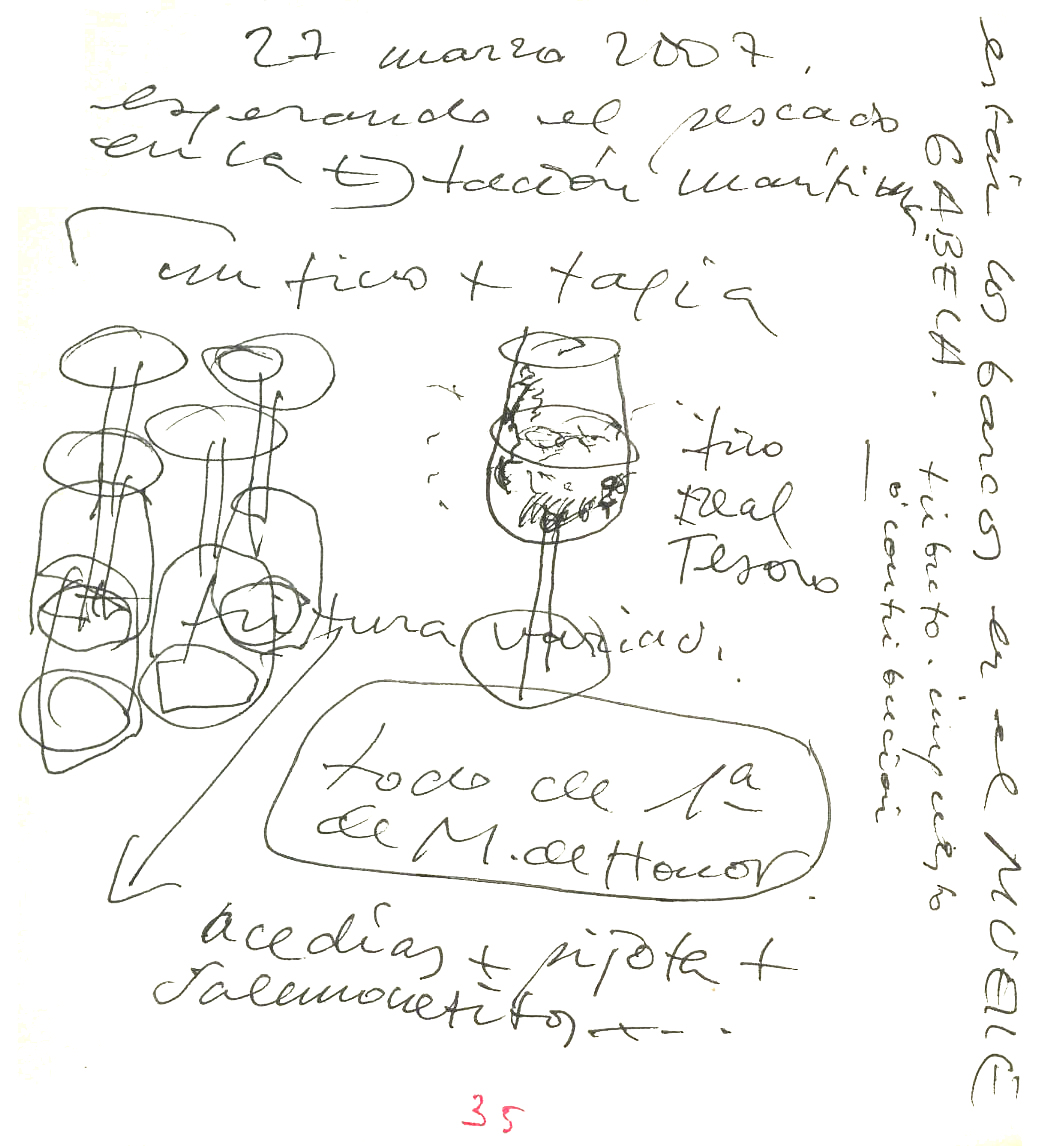 27 marzo 2007.
esperando el pescado
en la Estación marítima
un fino + tapia
fino
Real
Tesoro
fritura variad.
todo de 1ª
de M. de Honor
acedías + pijota +
Salmonetitos + - . .
están los barcos en el MUELLE
GABELA. tributo. impuesto
o contribución
35